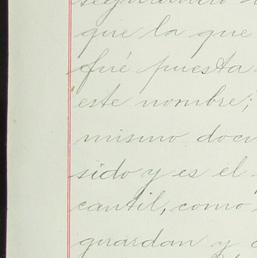 segundo
que la que
fué puesta
este nombre;
mismo docu
sido y es el
cantil, como
guardan y